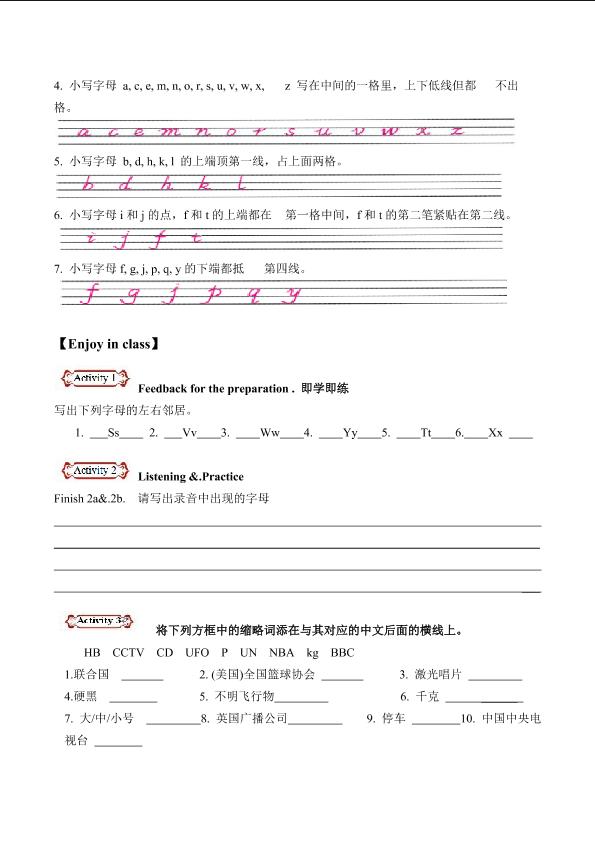 4. 小写字母 a, c, e, m, n, o, r, s, u, v, w, x, z 写在中间的一格里，上下低线但都 不出
格。
a c e m n o r s u v w x z
5. 小写字母 b, d, h, k, l 的上端顶第一线，占上面两格。
b d h k l
6. 小写字母 i 和 j 的点，f 和 t 的上端都在 第一格中间，f 和 t 的第二笔紧贴在第二线。
i j f t
7. 小写字母 f, g, j, p, q, y 的下端都抵 第四线。
f g j p q y
【Enjoy in class】
Activity 1 Feedback for the preparation . 即学即练
写出下列字母的左右邻居。
1. ___Ss____ 2. ___Vv____3. ____Ww____4. ____Yy____5. ____Tt____6.____Xx ____
Activity 2 Listening &.Practice
Finish 2a&.2b. 请写出录音中出现的字母
Activity 3 将下列方框中的缩略词添在与其对应的中文后面的横线上。
HB CCTV CD UFO P UN NBA kg BBC
1.联合国 _______ 2. (美国)全国篮球协会 _______ 3. 激光唱片 _________
4.硬黑 ________ 5. 不明飞行物_________ 6. 千克 _____________
7. 大/中/小号 _________8. 英国广播公司_________ 9. 停车 ________10. 中国中央电
视台 ________